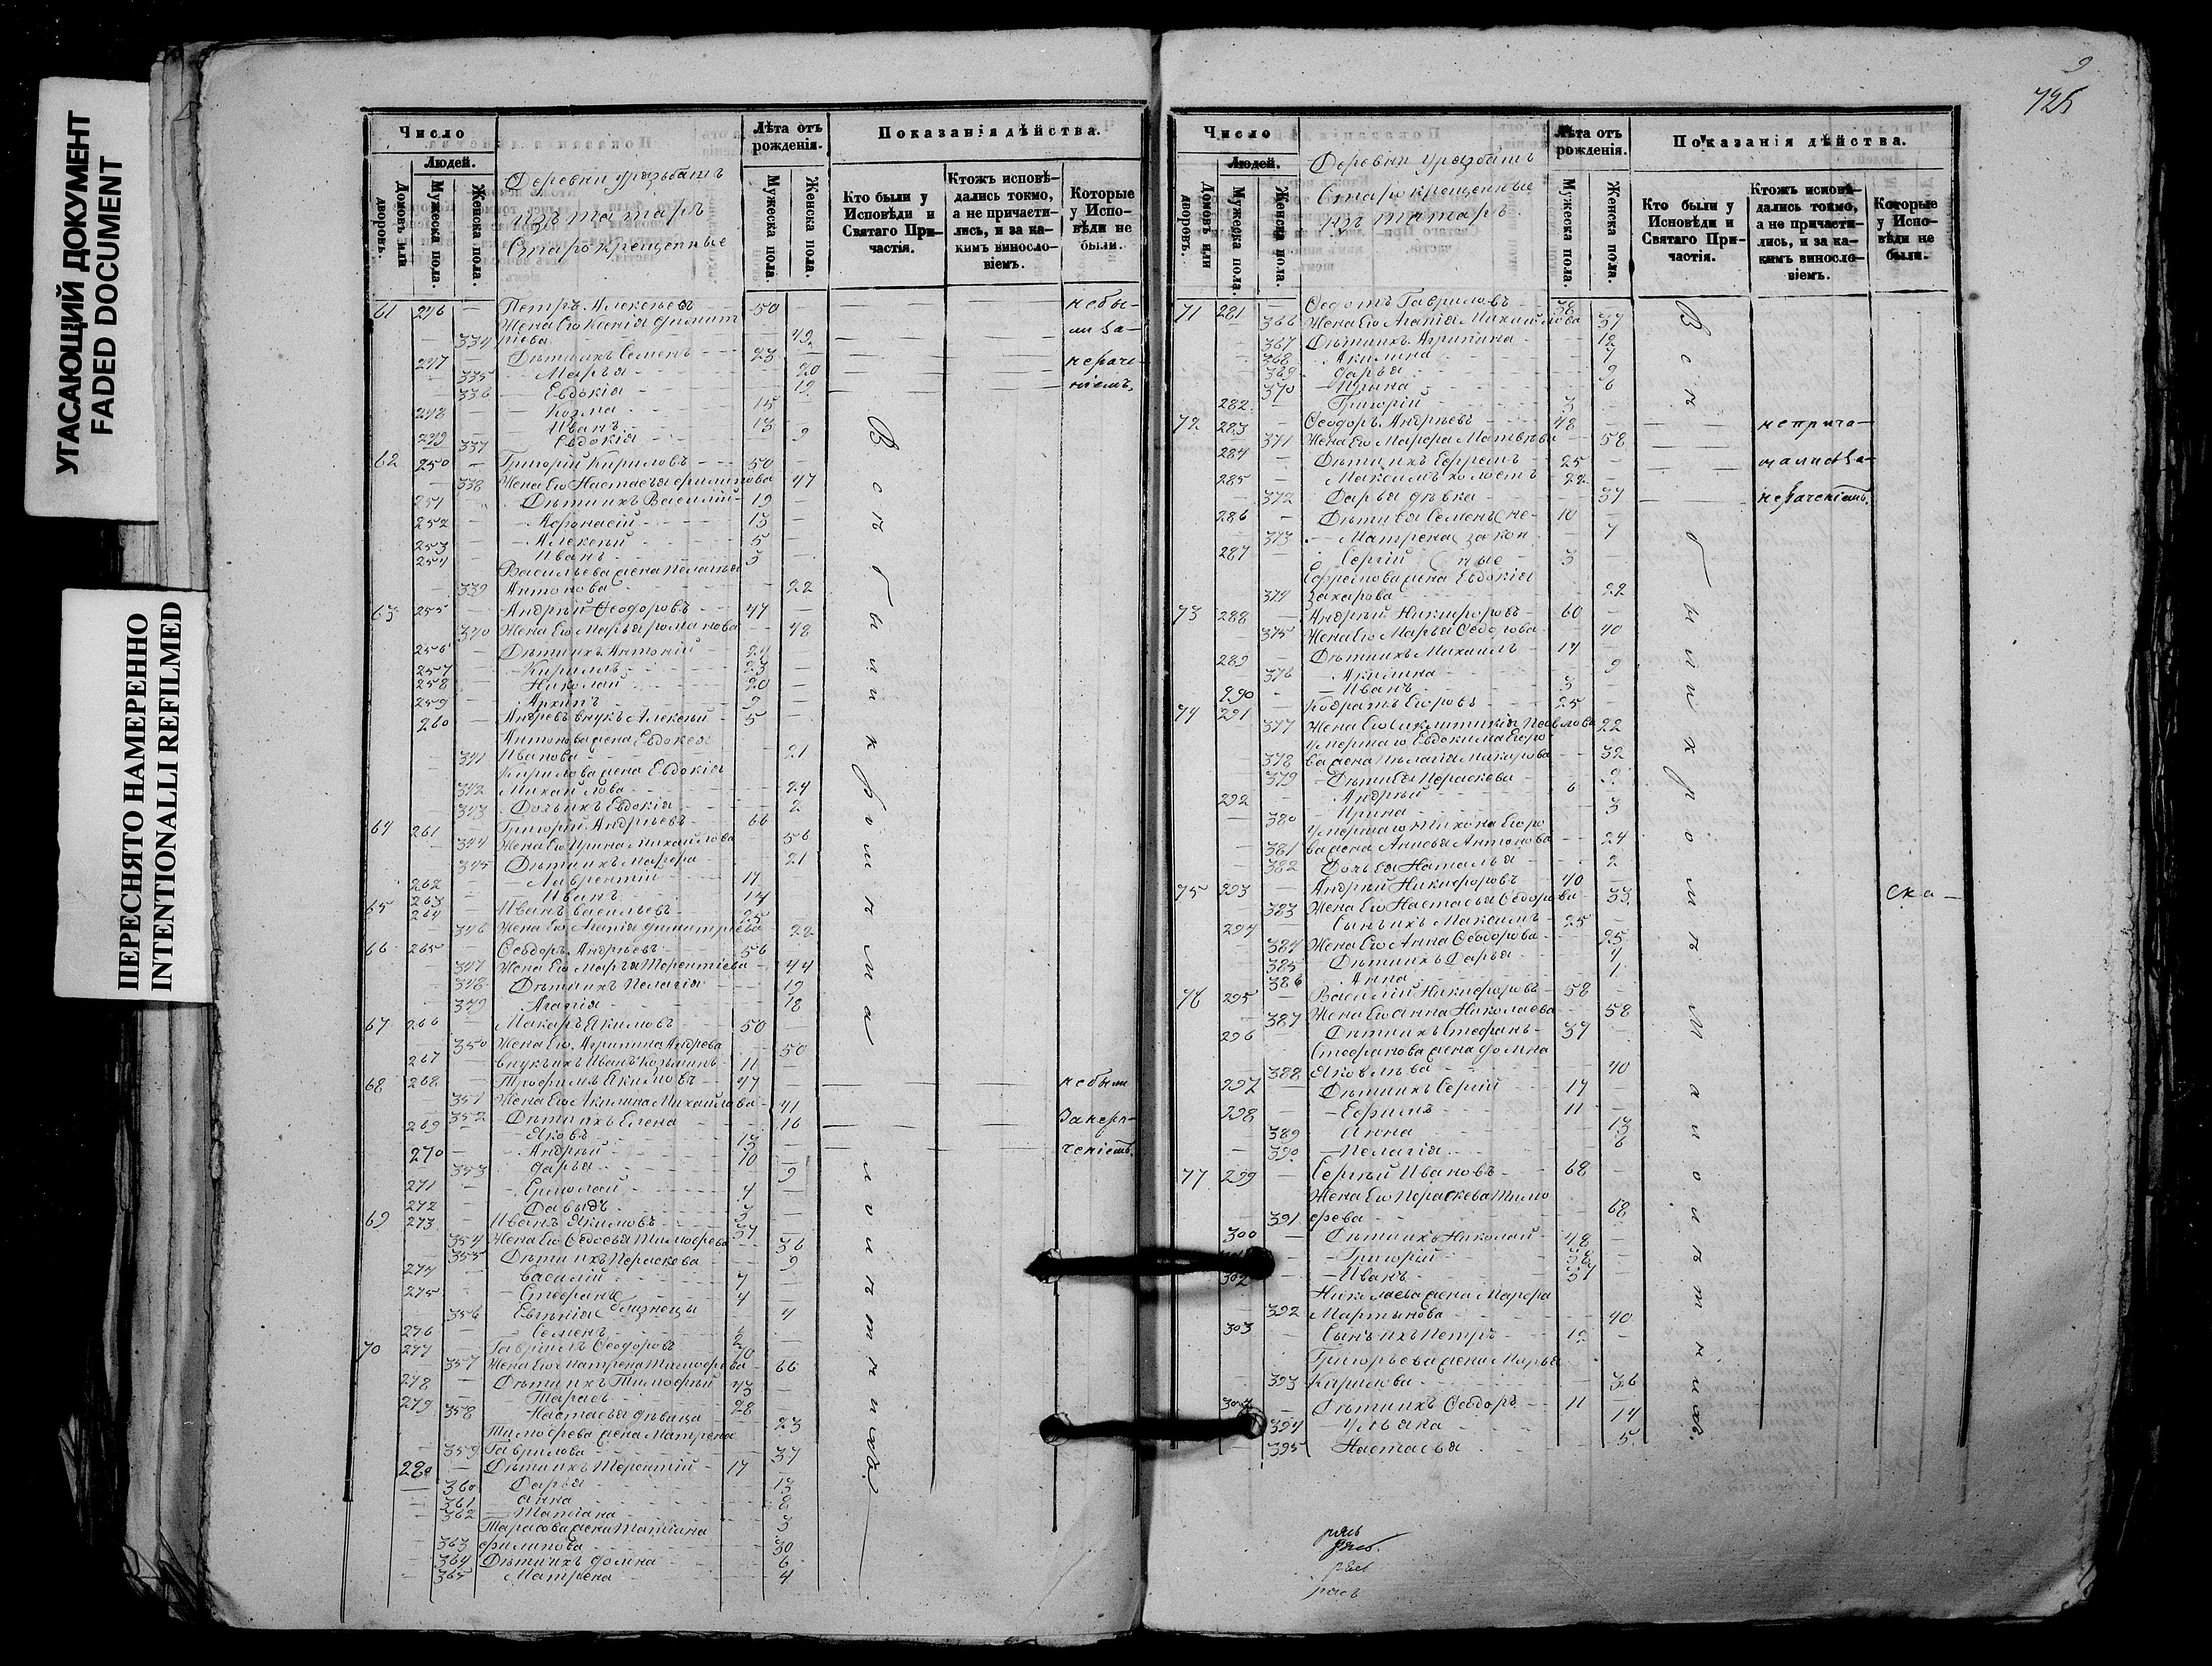 УГАСАЮЩИЙ ДОКУМЕНТ
FADED DOCUMENT
ПЕРЕСНЯТО НАМЕРЕННО
INTENTIONALLI REFILMED
Число
Людей.
Домовъ или дворовъ.
Мужеска пола.
Женска пола.
Деревни
изъ татаръ
Старокрещенные
Лѣта отъ рожденія.
Мужеска пола.
Женска пола.
Показанія дѣйства.
Кто были у Исповѣди и Святаго Причастія.
Ктожъ исповѣдались токмо, а не причастились, и за какимъ винословіемъ.
Которые у Исповѣди не были.
61 246 — Петръ Алексѣевъ 50 — небы-
Жена Его Ксенія Димит
334 ріева 49 ли за-
247 — Дѣти ихъ Семенъ 23 нераче-
335 Марья 20
336 Евдокія 12 ніемъ.
248 — Козма 15
249 — Иванъ 13
337 Евдокія 9
62 250 — Григорій Кириловъ 50
338 Жена Его Настасья Филипова 47
251 Дѣти ихъ Василій 19
252 — Афонасій 13
253 — Алексѣй 5
254 — Иванъ 3
Васильева жена Пелагья
339 Антонова 22
63 255 — Андрей Ѳеодоровъ 47
340 Жена Его Марья Романова 48
256 — Дѣти ихъ Антоній 24
257 — Кирилъ 23
258 — Николай 20
259 — Архипъ 9
260 — Андреевъ внукъ Алексѣй 5
Антонова жена Евдокея
341 Иванова 21
Кирилова жена Евдокія
342 Михайлова 24
343 Дочь ихъ Евдокія 2
64 261 — Григорій Андрѣевъ 66
344 Жена Его Ирина Михайлова 56
345 Дѣти ихъ Марфа 21
262 — Лаврентій 17
263 — Иванъ 14
65 264 — Иванъ Васильевъ 25
346 Жена Его Агапія Димитріева 22
66 265 — Ѳеодоръ Андрѣевъ 56
347 Жена Его Марья Терентіева 44
348 Дѣти ихъ Пелагія 19
349 Агапія 18
67 266 — Макаръ Якимовъ 50
350 Жена Его Агрипина Андрева 50
267 внукъ ихъ Иванъ Козьминъ 11
68 268 — Трофимъ Якимовъ 47 — небыли
351 Жена Его Акилина Михайлова 41
352 Дѣти ихъ Елена 16 Занера-
269 — Яковъ 13
270 — Андрей 10 ченіемъ.
353 Дарья 9
271 — Ермолай 4
272 — Давыдъ 3
69 273 — Иванъ Якимовъ 37
354 Жена Его Ѳедосья Тимофеева 36
355 Дѣти ихъ Пераскева 9
274 — Василій 7
275 — Стефанъ 4
356 Евгенія близнецы 4
276 — Семенъ 2
70 277 — Гавриилъ Ѳеодоровъ 70
357 Жена Его Матрена Тимофеева 66
278 — Дѣти ихъ Тимофей 43
279 — Тарасъ 28
358 Настасья дѣвица 23
Тимофеева жена Матрена
359 Гаврилова 37
280 — Дѣти ихъ Терентій 17
360 Дарья 13
361 Анна 8
362 Татіана 3
Тарасова жена Татіана
363 Филипова 30
364 Дѣти ихъ Домна 6
365 Матрена 4
9
725
Число
Людей.
Домовъ или дворовъ.
Мужеска пола.
Женска пола.
Деревни
Старокрещенные
изъ татаръ.
Лѣта отъ рожденія.
Мужеска пола.
Женска пола.
Показанія дѣйства.
Кто были у Исповѣди и Святаго Причастія.
Ктожъ исповѣдались токмо, а не причастились, и за какимъ винословіемъ.
Которые у Исповѣди не были.
71 281 — Ѳедотъ Гавриловъ 38
366 Жена Его Агапія Михайлова 37
367 Дѣти ихъ Агрипина 12
368 Акилина 7
369 Дарья 9
370 Ирина 6
282 Григорій 3
72 283 — Ѳеодоръ Андрѣевъ 48 — неприча-
371 Жена Его Марфа Матвѣева 58
284 — Дѣти ихъ Ефремъ 25
285 — Максимъ холостъ 22
372 Дарья дѣвка 37 нераченіемъ.
286 — Дѣти ея Семенъ не- 10
373 Матрена закон 7
287 — Сергій ные 3
Ефремова жена Евдокія
374 Захарова 22
73 288 — Андрей Никифоровъ 60
375 Жена Его Марья Ѳедорова 40
289 — Дѣти ихъ Михаилъ 14
376 Акилина 9
290 — Иванъ 3
74 291 — Кодратъ Егоровъ 25
377 Жена Его Павлова 22
Умершаго Евдокима Егоро
378 ва жена Пелагія Макарова 32
379 Дѣти Ея Пераскева 9
292 — Андрей 6
380 Ирина 3
Умершаго Тихона Егоро
381 ва жена Антонова 24
382 Дочь Ея Наталья 2
75 293 — Андрей Никифоровъ 40
383 Жена Его Настасья Ѳедорова 33
294 — Сынъ ихъ Максимъ 25
384 Жена Его Анна Ѳеодорова 25
385 Дѣти ихъ Дарья 4
386 Анна 1
76 295 — Василій Никифоровъ 58
387 Жена Его Анна Николаева 58
296 — Дѣти ихъ Стефанъ 37
Стефанова жена Домна
388 Яковлева 40
297 — Дѣти ихъ Сергій 17
298 — Ефимъ 11
389 Анна 13
390 Пелагія 6
77 299 — Сергѣй Ивановъ 68
Жена Его Пераскева Тимо
391 феева 68
300 — Дѣти ихъ Николай 48
Григорій 38
302 — Иванъ 37
Николаева жена Марфа
392 Мартынова 40
303 — Сынъ ихъ Петръ 12
Григорьева жена Марья
393 Кирилова 36
304 — Дѣти ихъ Ѳеодоръ 11
394 Ульяна 14
395 Настасья 5
ска —